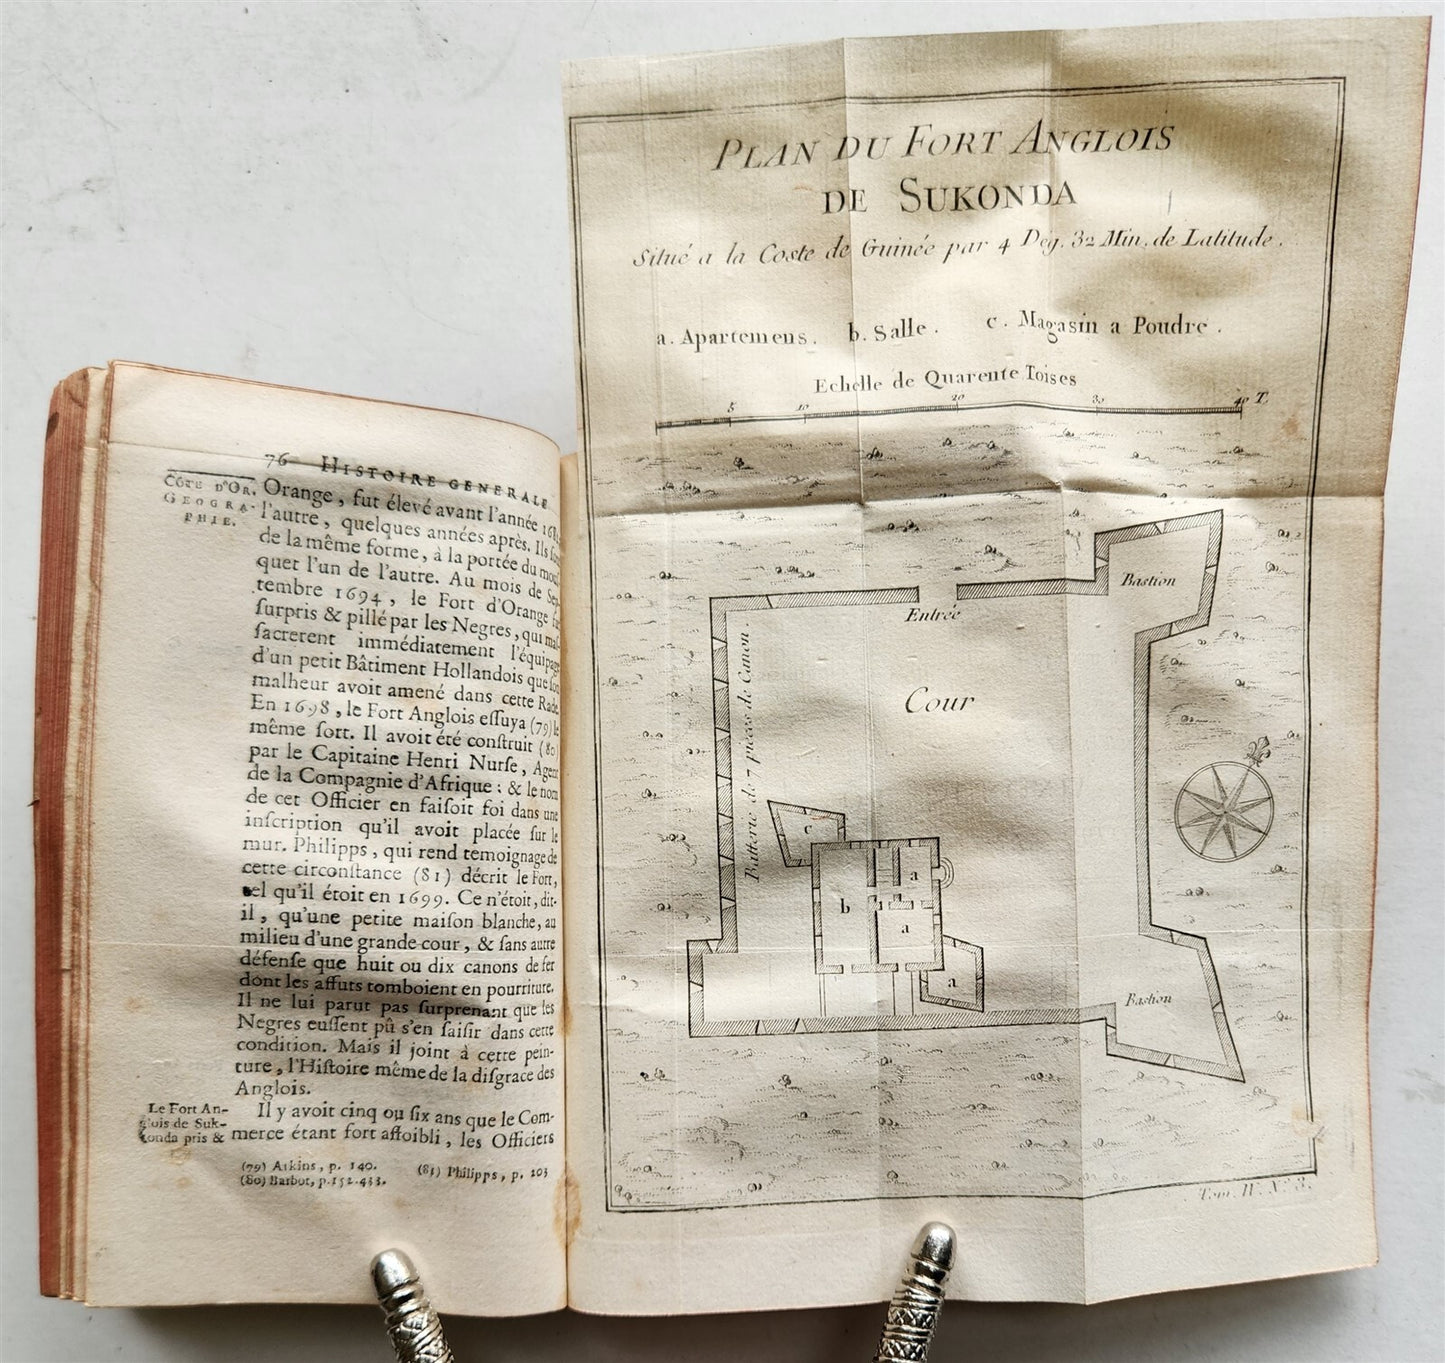 76 HISTOIRE GENERALE
CÔTE D'OR.
GEOGRA-
PHIE.
Orange, fut élevé avant l'année 168
l'autre, quelques années après. Ils
de la même forme, à la portée du mous
quet l'un de l'autre. Au mois de Sep
tembre 1694, le Fort d'Orange
surpris & pillé par les Negres, qui mas-
sacrerent immédiatement l'équipage
d'un petit Bâtiment Hollandois que son
malheur avoit amené dans cette Rade
En 1698, le Fort Anglois essuya (79) le
même sort. Il avoit été construit (80)
par le Capitaine Henri Nurse, Agent
de la Compagnie d'Afrique : & le nom
de cet Officier en faisoit foi dans une
inscription qu'il avoit placée sur le
mur. Philipps, qui rend temoignage de
cette circonstance (81) décrit le Fort,
tel qu'il étoit en 1699. Ce n'étoit, dit-
il, qu'une petite maison blanche, au
milieu d'une grande cour, & sans autre
défense que huit ou dix canons de fer
dont les affuts tomboient en pourriture.
Il ne lui parut pas surprenant que les
Negres eussent pû s'en saisir dans cette
condition. Mais il joint à cette pein-
ture, l'Histoire même de la disgrace des
Anglois.
Le Fort An-
glois de Suk-
konda pris &
Il y avoit cinq ou six ans que le Com-
merce étant fort affoibli, les Officiers
(79) Atkins, p. 140.
(80) Barbot, p. 152. 433.
(81) Philipps, p. 203
PLAN DU FORT ANGLOIS
DE SUKONDA
Situé a la Coste de Guinée par 4 Deg. 32 Min. de Latitude.
a. Apartemens. b. Salle. c. Magasin a Poudre.
Echelle de Quarente Toises
5 10 20 30 40 T.
Bastion
Entrée
Batterie de 7 pieces de Canon.
Cour
c
a
b
a
a
Bastion
Tom. IV. N.º 3.